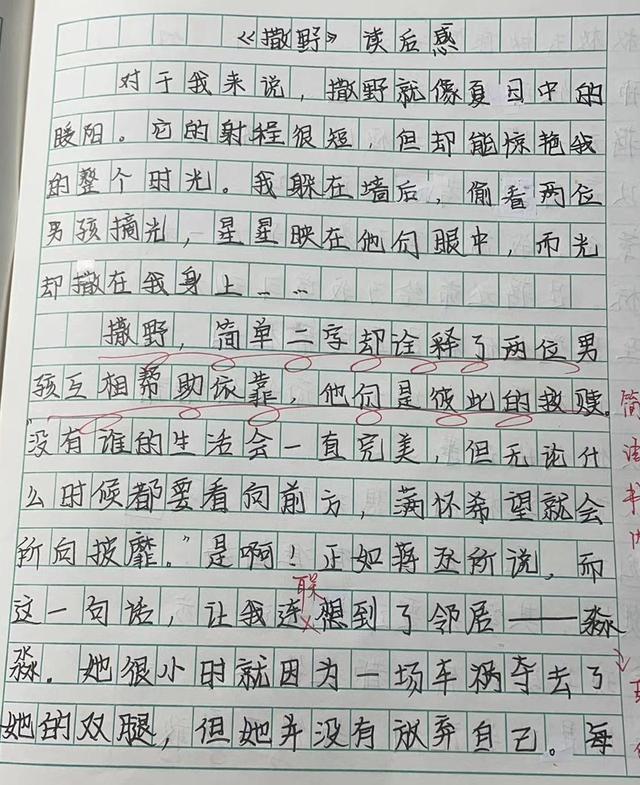 《撒野》读后感
对于我来说，撒野就像夏日中的
暖阳。它的射程很短，但却能惊艳我
的整个时光。我躲在墙后，偷看两位
男孩摘光，星星映在他们眼中，而光
却撒在我身上……
撒野，简单二字却诠释了两位男
孩互相帮助依靠，他们是彼此的救赎。
“没有谁的生活会一直完美，但无论什
么时候都要看向前方，满怀希望就会
所向披靡。”是啊！正如蒋丞所说，而
联
这一句话，让我连想到了邻居——淼
淼．她很小时就因为一场车祸夺去了
她的双腿，但她并没有放弃自己。每
简